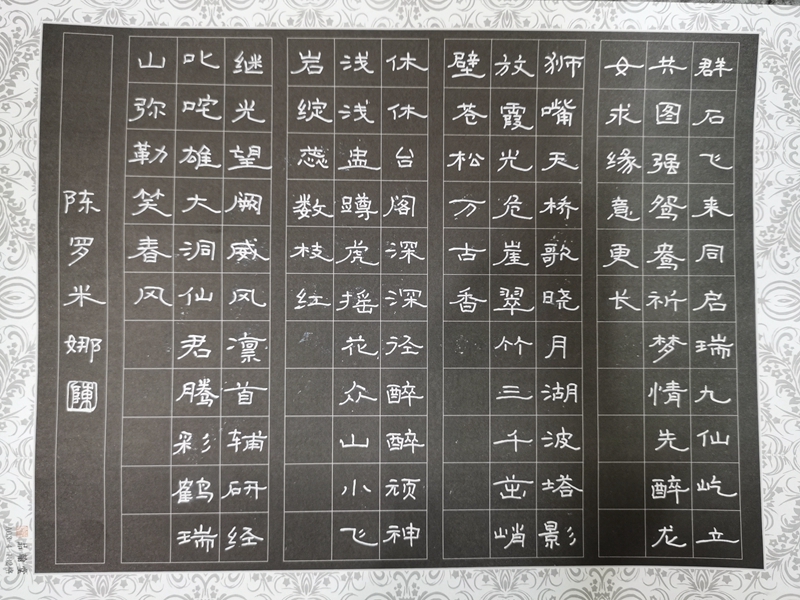 群石飞来同启瑞九仙屹立
共图强鸳鸯祈梦情先醉龙
女求缘意更长
狮嘴天桥歌晓月湖波塔影
放霞光危崖翠竹三千峦峭
壁苍松万古香
休休台阁深深径醉醉顽神
浅浅盅蹲虎摇花众山小飞
岩绽蕊数枝红
继光望阙威风凛首辅研经
叱咤雄大洞仙君腾彩鹤瑞
山弥勒笑春风
陈罗米娜